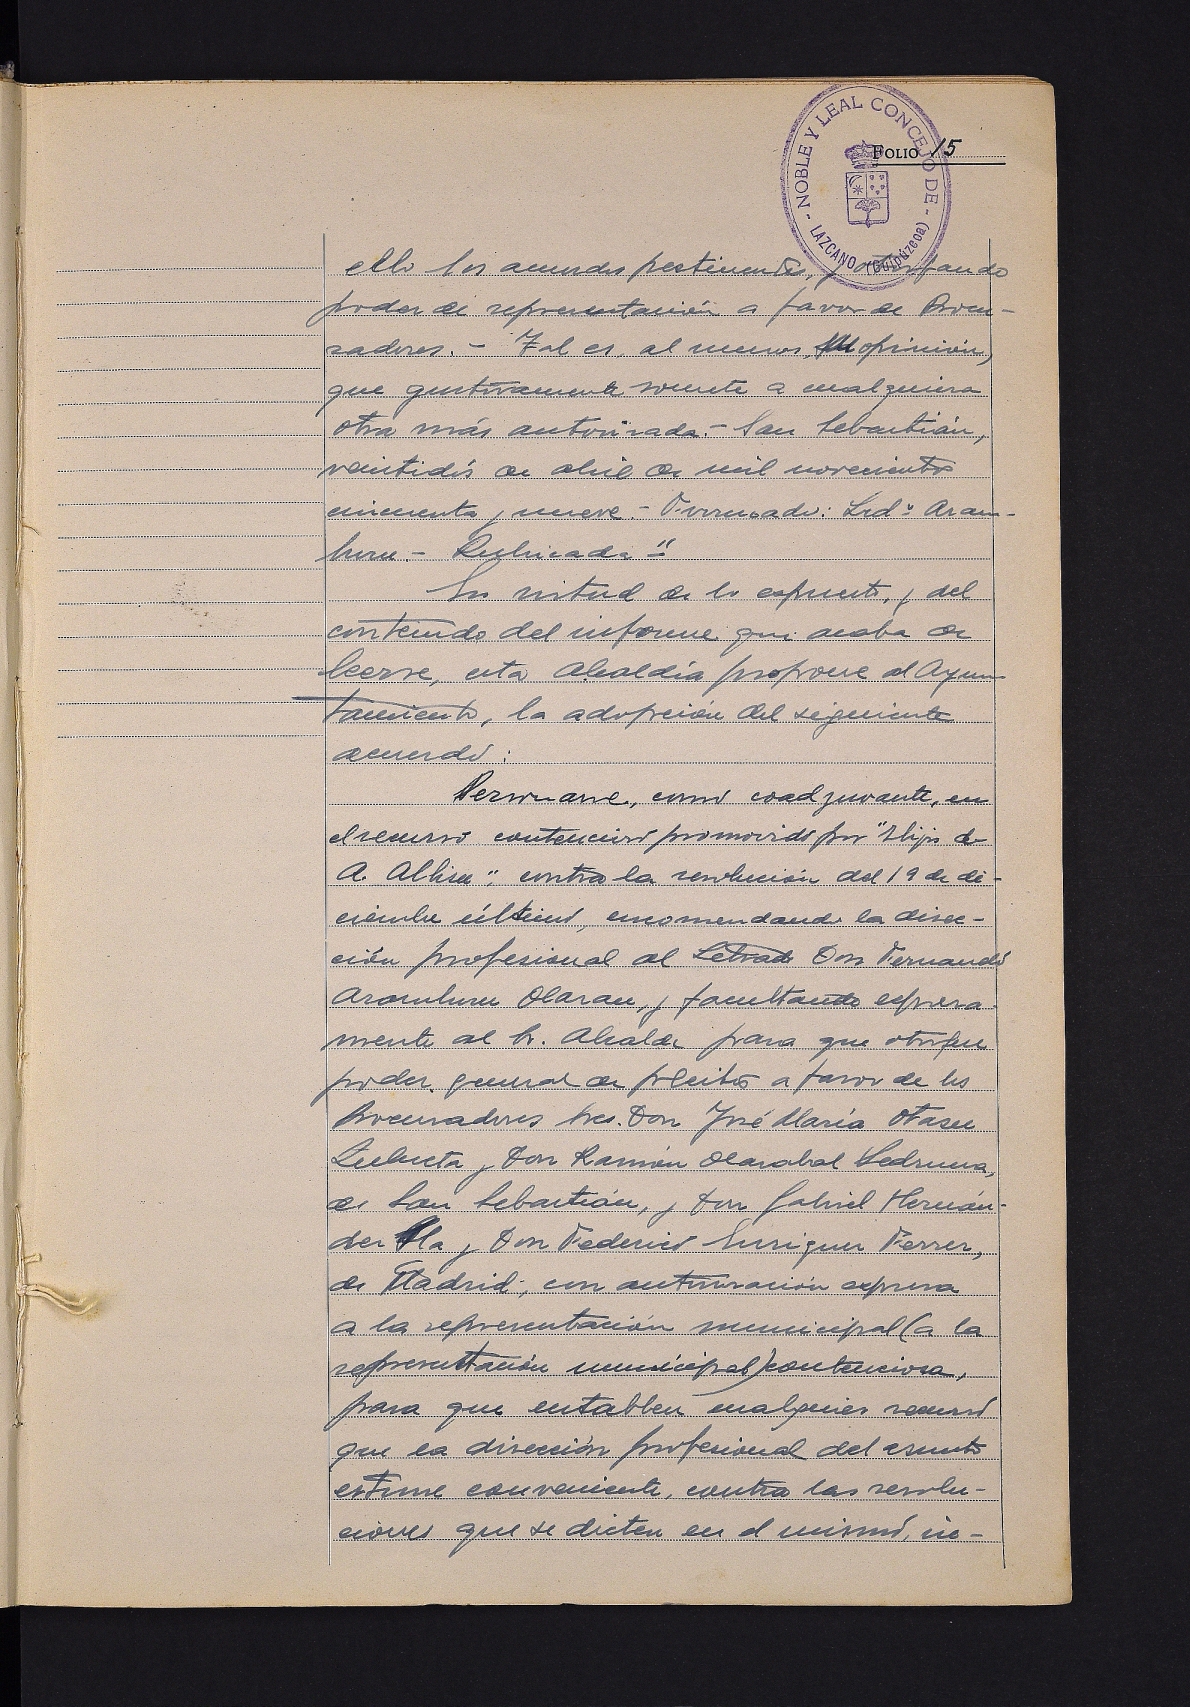 NOBLE Y LEAL CONCEJO DE - LAZCANO (Guipúzcoa) -
FOLIO 15
ello los acuerdos pertinentes, y otorgando
poder de representación a favor de Procu-
radores.- Tal es, al menos, mi opinión,
que gustosamente somete a cualquiera
otra más autorizada.- San Sebastián,
veintidós de abril de mil novecientos
cincuenta y nueve.- Firmado: Lcdº Aram-
buru - Rubricada"=
En virtud de lo expuesto, y del
contenido del informe que acaba de
leerse, esta Alcaldía propone al Ayun-
tamiento, la adopción del siguiente
acuerdo:
Personarse, como coadyuvante, en
el recurso contencioso promovido por "Hijos de
A. Albisu", contra la resolución del 19 de di-
ciembre último, encomendando la direc-
ción profesional al Letrado Don Fernando
Aramburu Olaran, y facultando expresa-
mente al Sr. Alcalde para que otorgue
poder general de pleitos a favor de los
Procuradores Sres. Don José María Otazu
Zulueta y Don Ramón Olazabal
de San Sebastián, y Don Gabriel Hernán-
dez Pla y Don Federico Enriquez Ferrer,
de Madrid; con autorización expresa
a la representación municipal (a la
representación municipal) contenciosa,
para que entablen cualquier recurso
que la dirección profesional del asunto
estime conveniente, contra las resolu-
ciones que se dicten en el mismo, in-